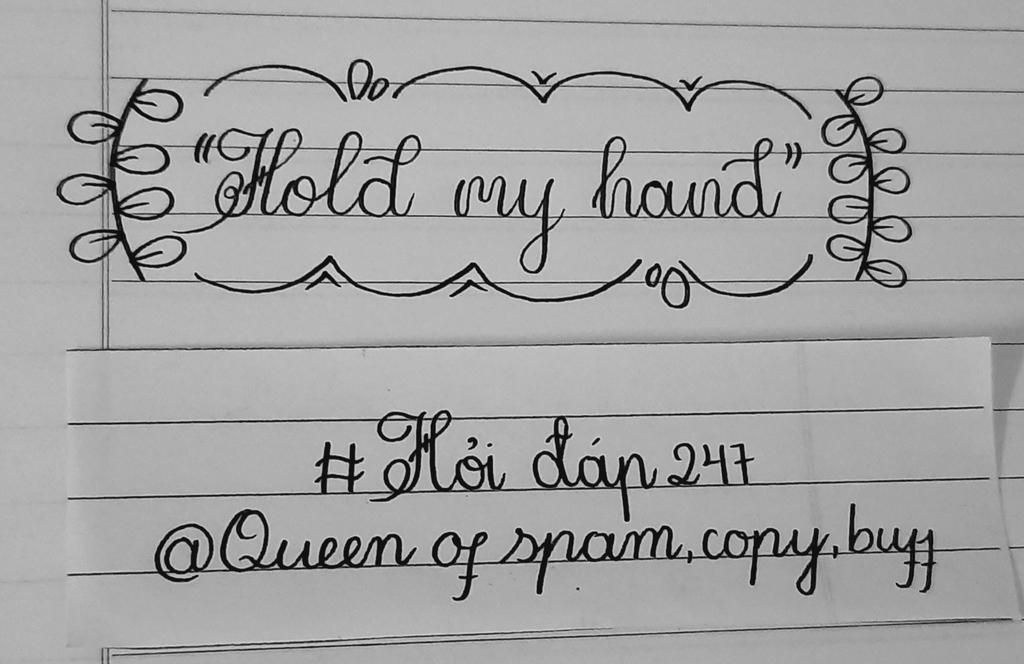 "Hold my hand"
#Hỏi đáp 247
@Queen of spam, copy, buff